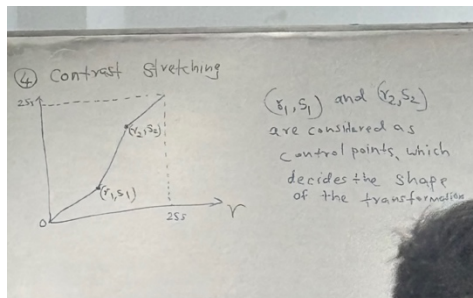 ④ Contrast Stretching
255
(r2,S2)
(r1,S1)
0
255
r
(r1,S1) and (r2,S2)
are considered as
control points, which
decides the shape
of the transformation